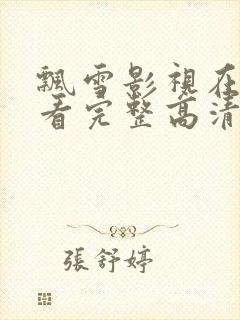 飄雪影視在
看完整高清
張舒婷